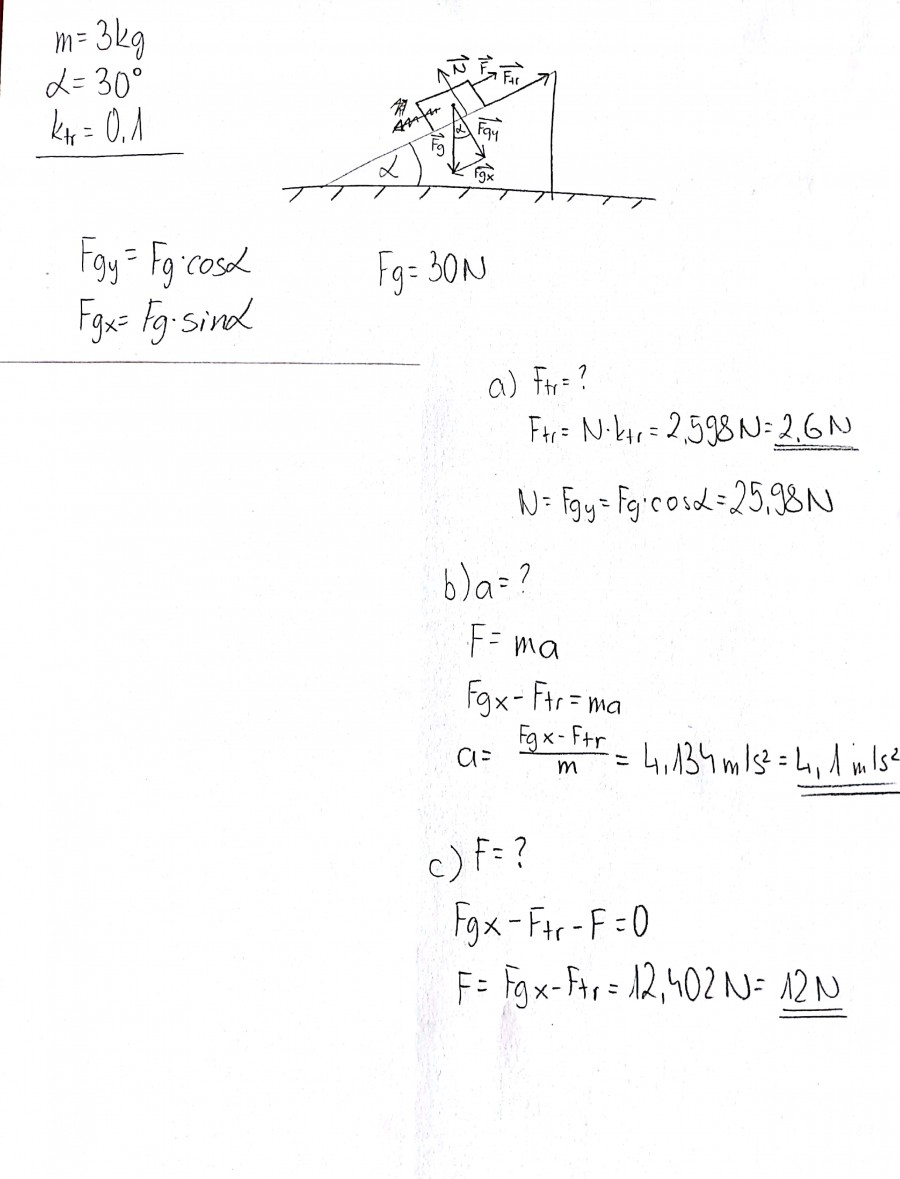 m = 3kg
α = 30°
ktr = 0,1
N F Ftr
Fg α Fgy
α Fgx
Fgy = Fg·cosα Fg = 30N
Fgx = Fg·sinα
a) Ftr = ?
Ftr = N·ktr = 2,598N = 2,6N
N = Fgy = Fg·cosα = 25,98N
b) a = ?
F = ma
Fgx - Ftr = ma
a = (Fgx - Ftr)/m = 4,134 m/s² = 4,1 m/s²
c) F = ?
Fgx - Ftr - F = 0
F = Fgx - Ftr = 12,402N = 12N